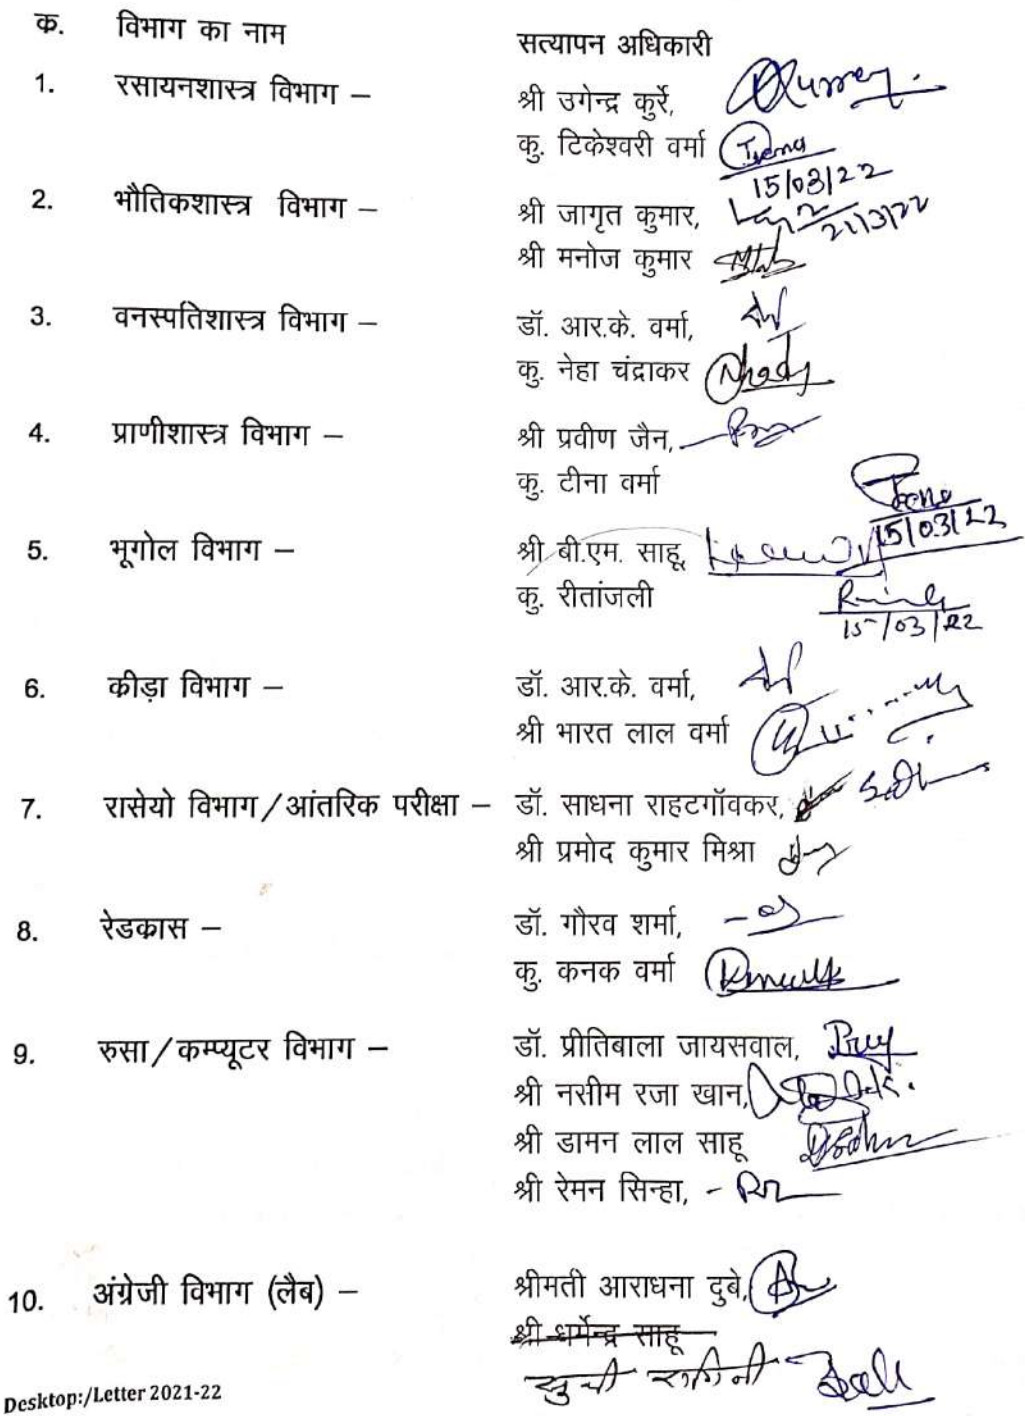 क. विभाग का नाम सत्यापन अधिकारी
1. रसायनशास्त्र विभाग – श्री उगेन्द्र कुर्रे,
कु. टिकेश्वरी वर्मा
15/03/22
2. भौतिकशास्त्र विभाग – श्री जागृत कुमार,
21/3/22
श्री मनोज कुमार
3. वनस्पतिशास्त्र विभाग – डॉ. आर.के. वर्मा,
कु. नेहा चंद्राकर
4. प्राणीशास्त्र विभाग – श्री प्रवीण जैन,
कु. टीना वर्मा
15/03/22
5. भूगोल विभाग – श्री बी.एम. साहू,
कु. रीतांजली
15/03/22
6. कीड़ा विभाग – डॉ. आर.के. वर्मा,
श्री भारत लाल वर्मा
7. रासेयो विभाग/आंतरिक परीक्षा – डॉ. साधना राहटगॉवकर,
श्री प्रमोद कुमार मिश्रा
8. रेडकास – डॉ. गौरव शर्मा,
कु. कनक वर्मा
9. रुसा/कम्प्यूटर विभाग – डॉ. प्रीतिबाला जायसवाल,
श्री नसीम रजा खान,
श्री डामन लाल साहू
श्री रेमन सिन्हा,
10. अंग्रेजी विभाग (लैब) – श्रीमती आराधना दुबे,
श्री धर्मेन्द्र साहू
सु श्री रागिनी
Desktop:/Letter 2021-22